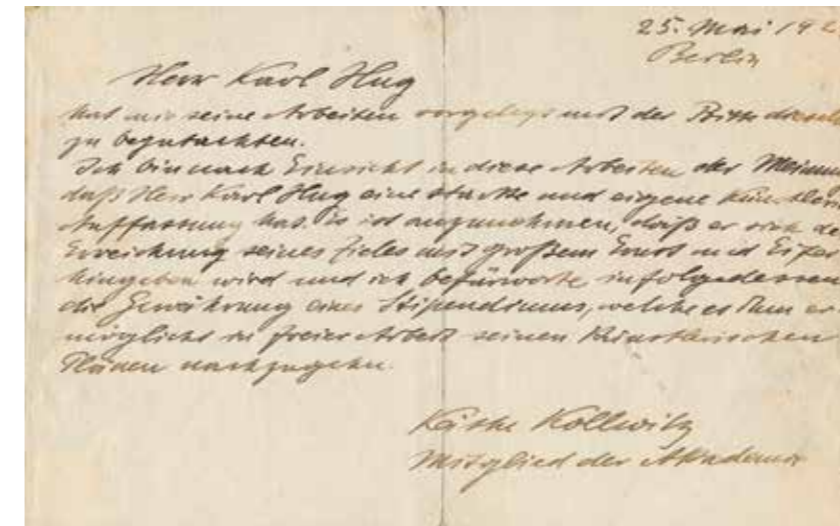 25. Mai 192
Berlin
Herr Karl Hug
hat mir seine Arbeiten vorgelegt mit der Bitte dieselb
zu begutachten.
Ich bin nach Einsicht in diese Arbeiten der Meinun
daß Herr Karl Hug eine starke und eigene künstleri
Auffassung hat. Es ist anzunehmen, daß er sich de
Erreichung seines Zieles mit großem Ernst und Eifer
hingeben wird und ich befürworte infolgedessen
die Gewährung eines Stipendiums, welche es ihm er
möglicht in freier Arbeit seinen künstlerischen
Plänen nachzugehn.
Käthe Kollwitz
Mitglied der Akademie